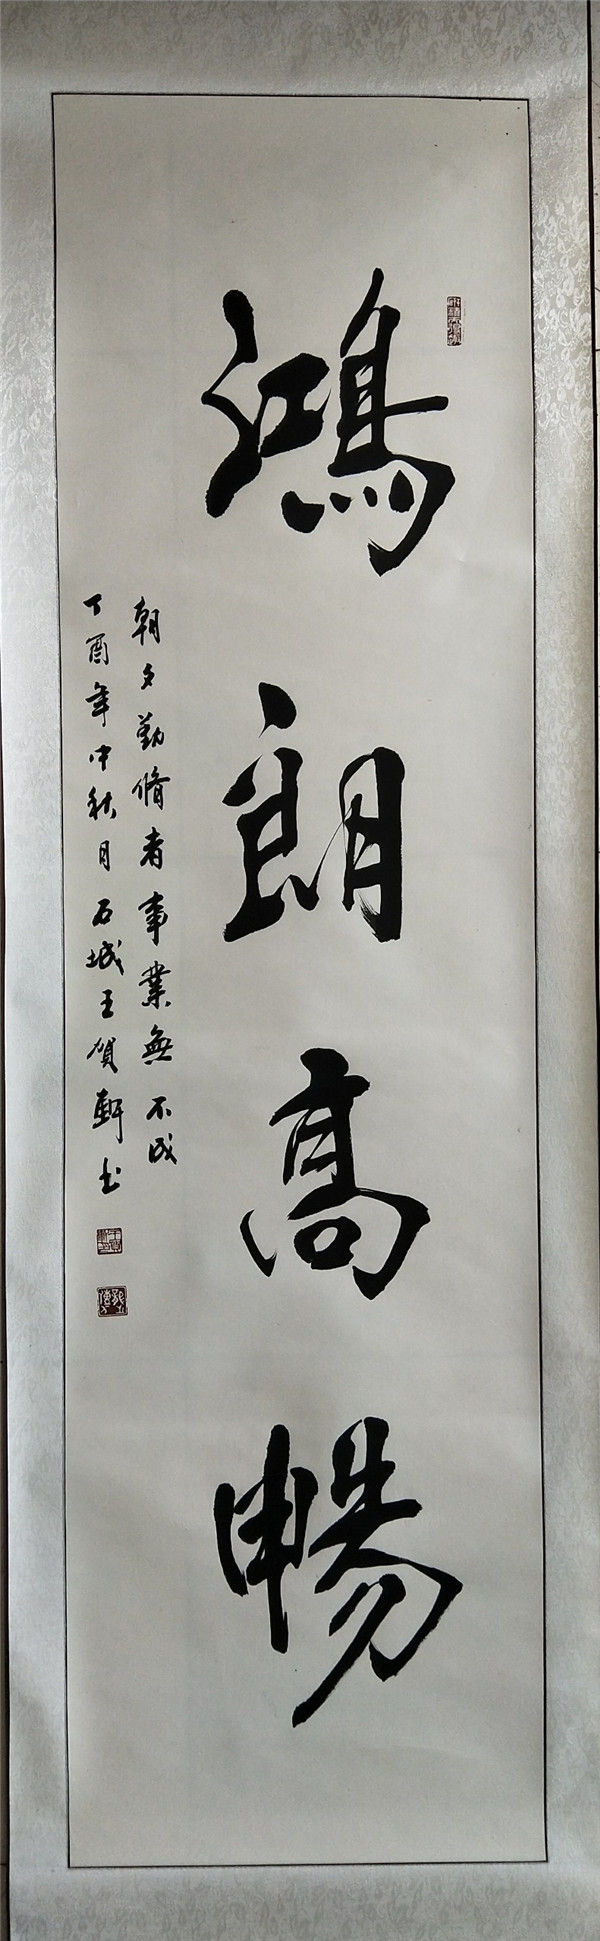 鴻朗高暢
朝夕勤脩者事業無不成
丁酉年中秋月石城王賀軒书